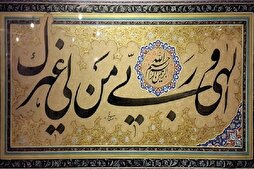 الهی و ربی من لی غیرک